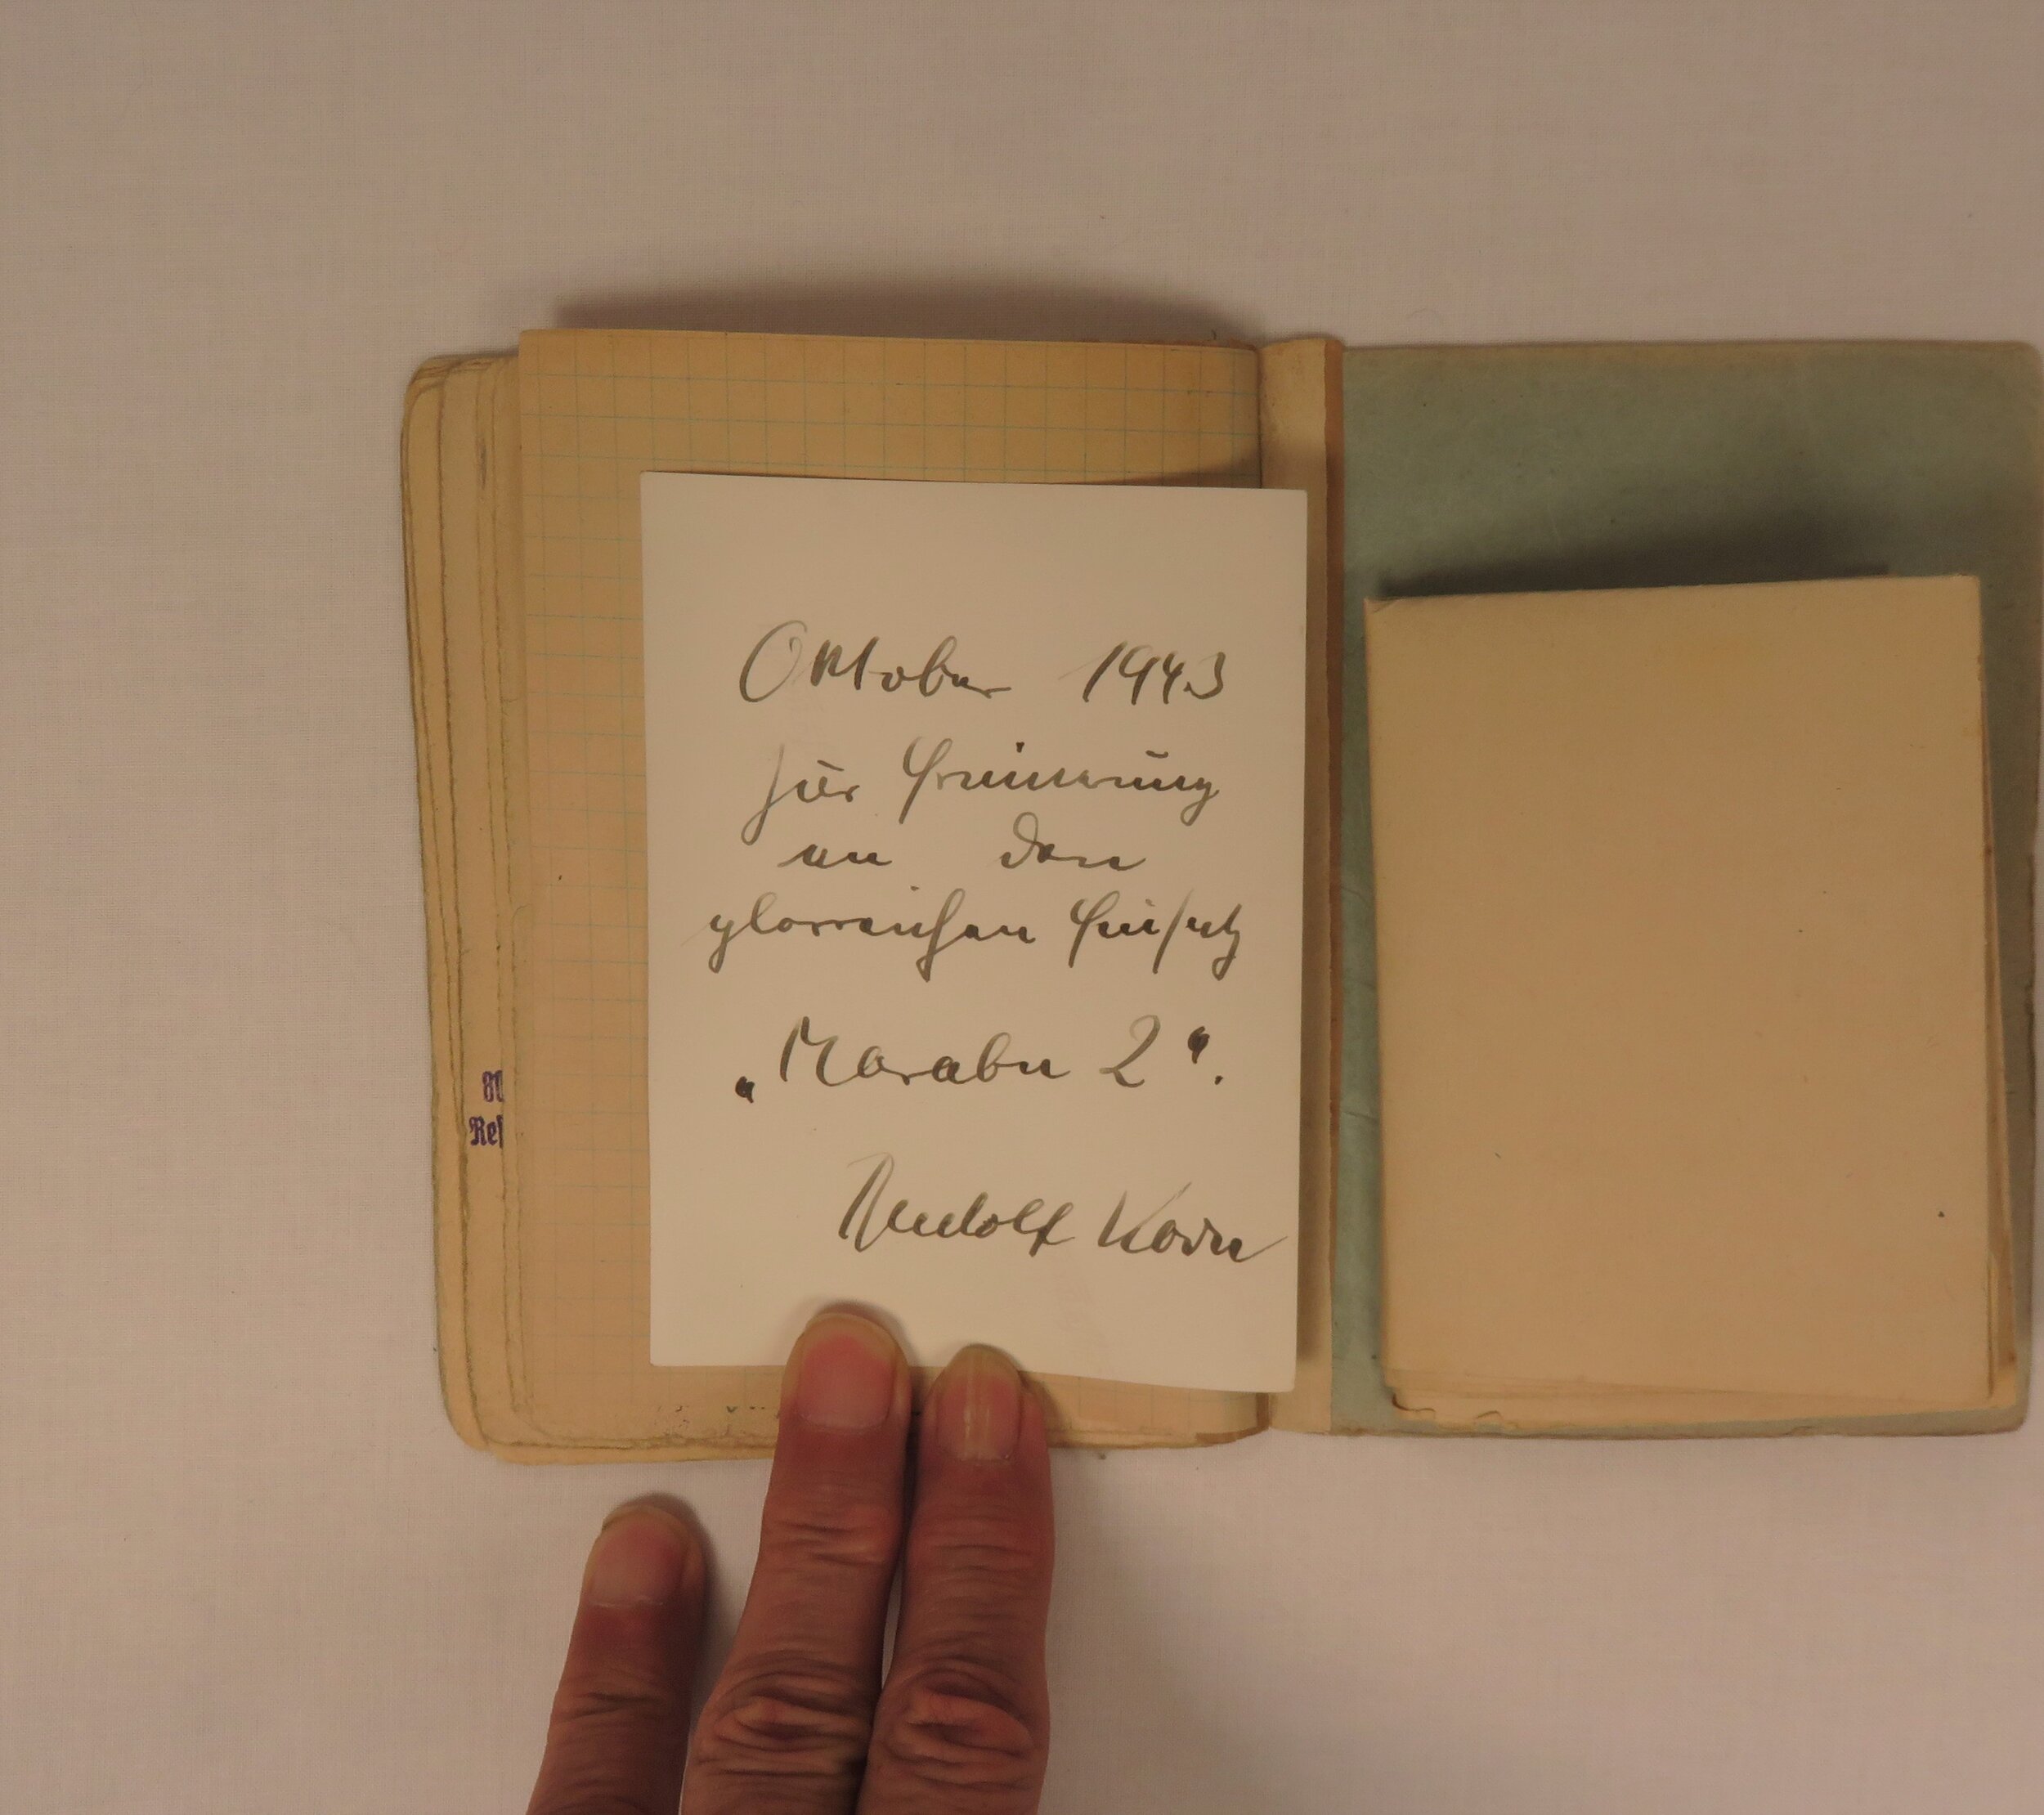 80
Res
Oktober 1943
zur Erinnerung
an den
glorreichen Einsatz
„Marabu 2“.
Rudolf Korn